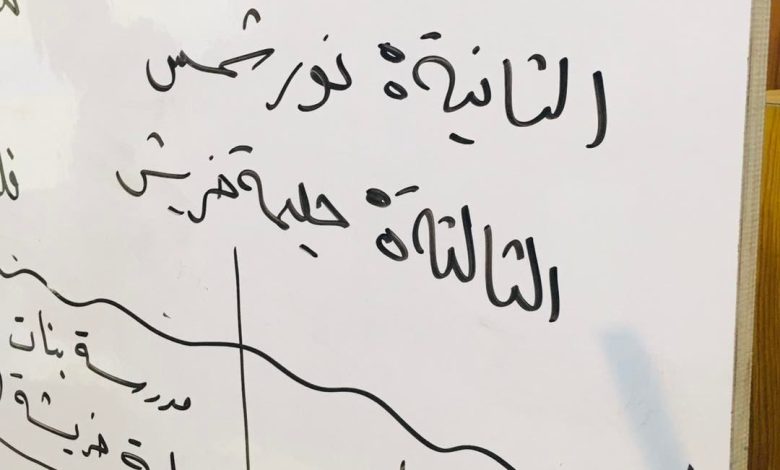 الثانية: نور شمس
الثالثة: حليمة خريش
مدرسة بنات
خريشة